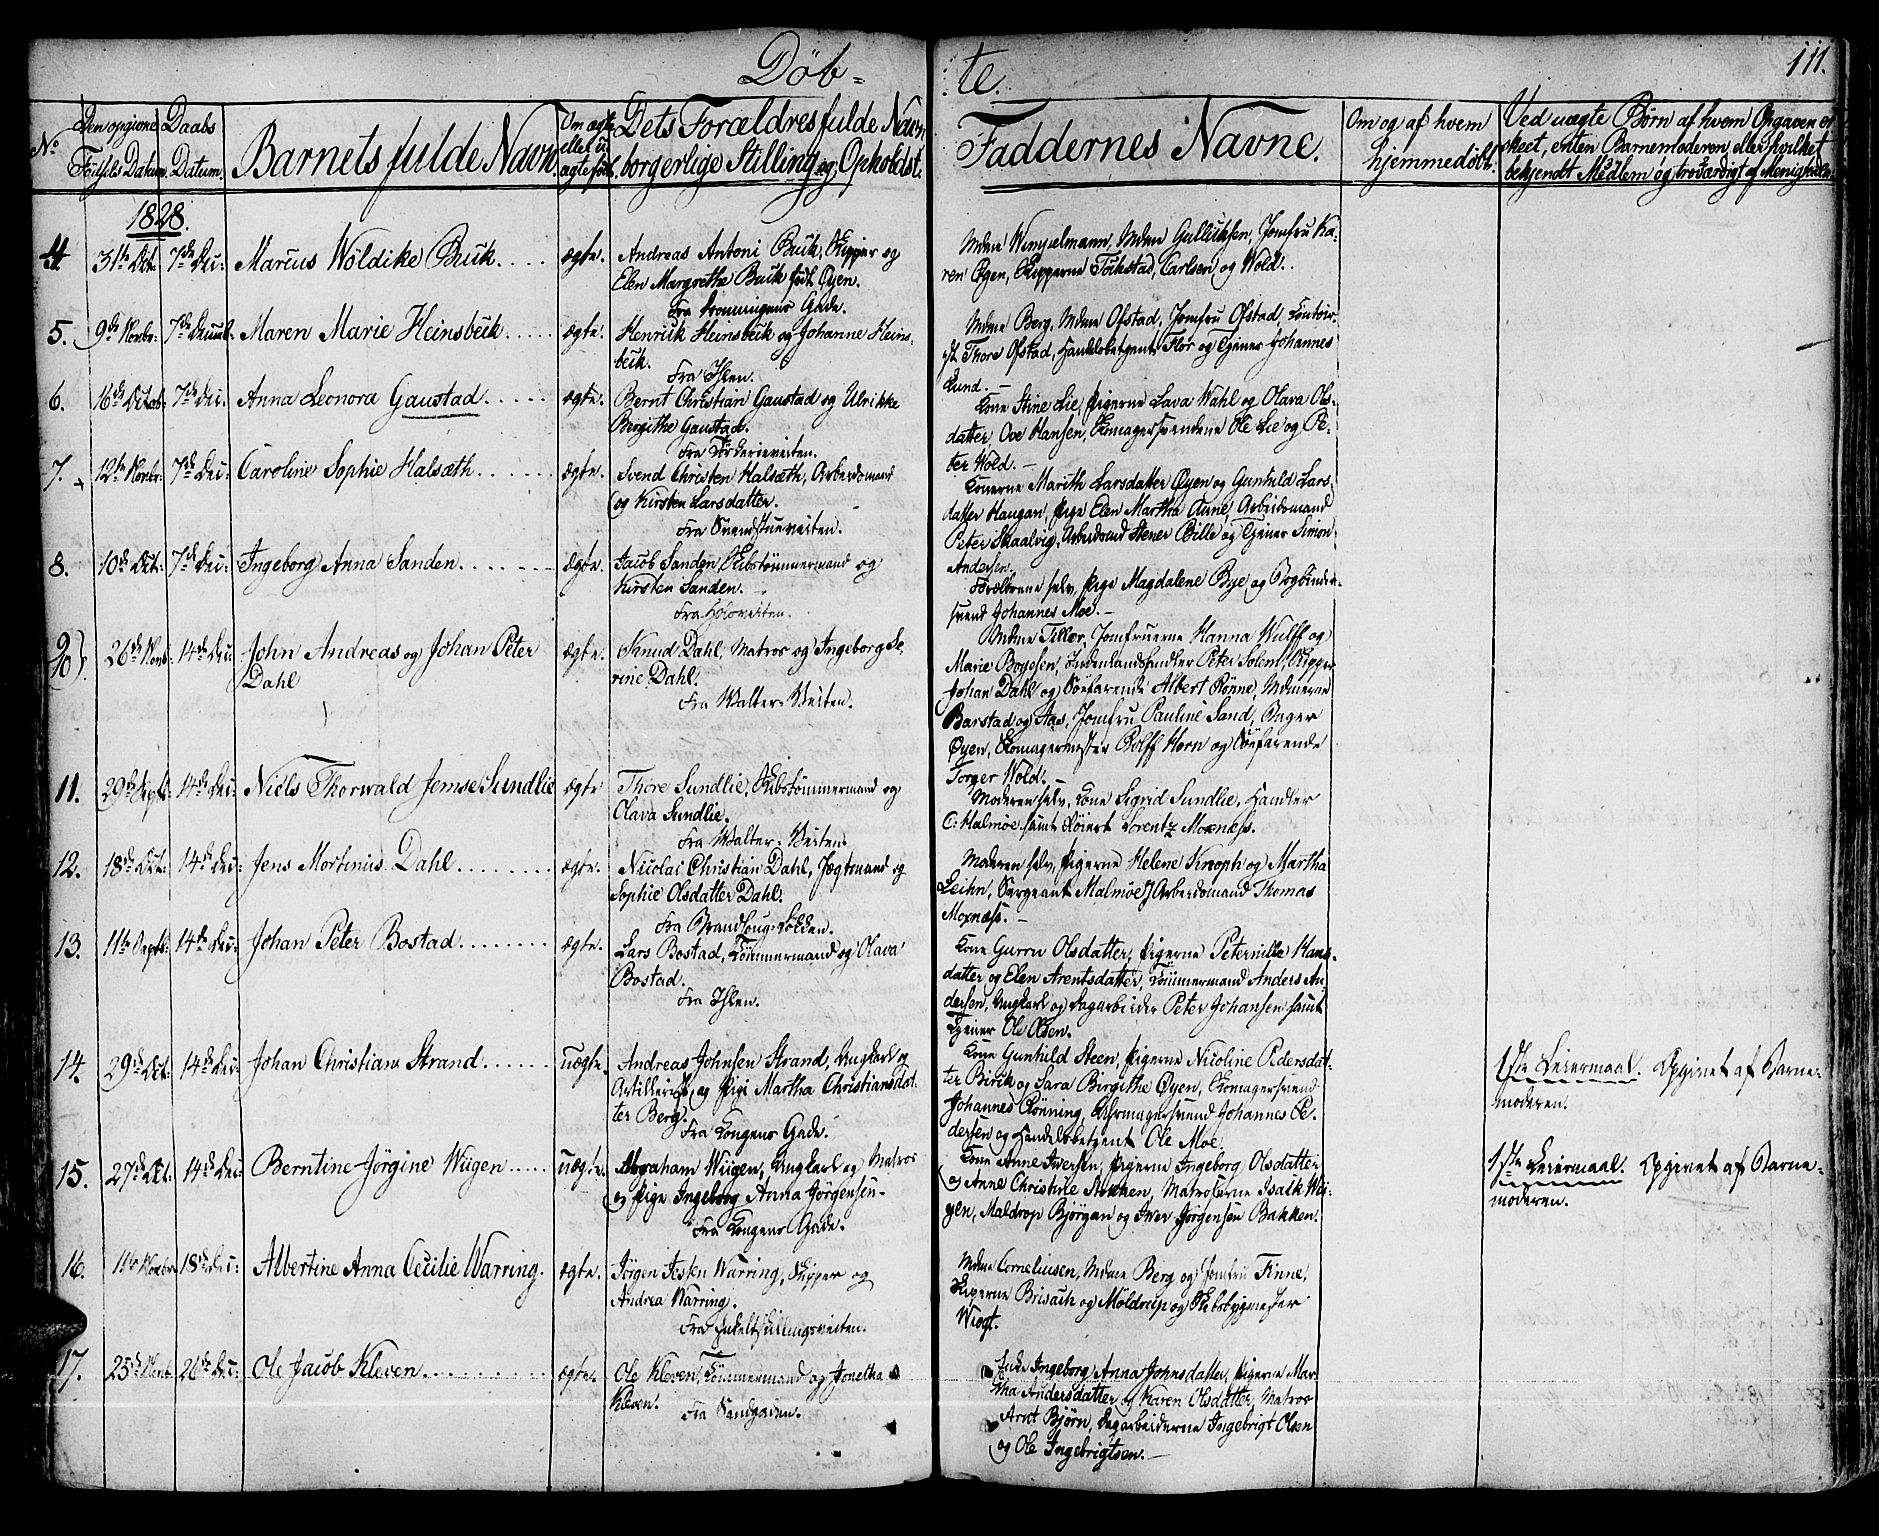 Døb-
te.
111.
No
Den opgivne
Fødsels Datum.
Daabs
Datum.
Barnets fulde Navn.
Om ægte
eller u-
ægte født.
Dets Forældres fulde Navn
borgerlige Stilling og Opholdst.
Faddernes Navne.
Om og af hvem
hjemmedøbt.
Ved uægte Børn af hvem Opgaven er
skeet, enten Barnemoderen, eller hvilket
bekjendt Medlem og troværdigt af Menigheden.
1828.
4. 31te Oct. 7de Dec: Marcus Wöldike Buck. ægte.
Andreas Antoni Buck, Skipper og
Elen Margrethe Buck født Øyen.
Fra Dronningens Gade.
Mdme Wingelmann, Mdme Gulluksen, Jomfru Ka-
ren Øyen, Skipperne Tøkstad, Carlsen og Wold.
5. 9de Novbr: 7de Decemb: Maren Marie Heinsbeck. ægte.
Henrick Heinsbeck og Johanne Heins-
beck.
Fra Ihlen.
Mdme Berg, Mdme Ofstad, Jomfru Ofstad, Contoir-
ist Thore Ofstad, Handelsbetjent Flor og Tjener Johannes
Lund.
6. 16de Octob: 7de Dec: Anna Leonora Gaustad. ægte.
Bernt Christian Gaustad og Ulrikke
Birgithe Gaustad.
Kone Stine Lie, Pigerne Lava Wahl og Olava Ols-
datter, Ove Hansen, Skomagersvendene Ole Lie og Pe-
ter Wold.
7. 12te Novbr: 7de Dec: Caroline Sophie Halsæth. ægte.
Svend Christen Halsæth, Arbeidsmand
og Kirsten Larsdatter.
Fra Svendstueveiten.
Konerne Marith Larsdatter Øyen og Gunhild Lars-
datter Haugan, Pige Elen Martha Aune, Arbeidsmand
Peter Skaalvig, Arbeidsmd Stener Bille og Tjener Simon
Andersen.
8. 10de Oct. 7de Dec: Ingeborg Anna Sanden. ægte.
Jacob Sanden, Skibstømmermand og
Kirsten Sanden.
Forældrene selv, Pige Magdalene Bye og Bogbinder-
svend Johannes Moe.
9
10). 26de Novb: 14de Dec: John Andreas og Johan Peter
Dahl
ægte.
Knud Dahl, Matros og Ingeborg Se-
rine Dahl.
Fra Walter-Veiten.
Mdme Tiller, Jomfruerne Hanna Wulff og
Marie Boyesen, Indenlandshandler Peter Solem, Skipper
Johan Dahl og Søefarende Albert Rønne, Mdmerne
Barstad og Aas, Jomfru Pauline Sand, Bager
Øyen, Skomagermester Rolff Horn og Søefarende
Torger Wold.
11. 29de Septb: 14de Dec: Niels Thorwald Jemse Sundlie ægte
Thore Sundlie, Skibstømmermand og
Olava Sundlie.
Fra Walter-Veiten.
Moderen selv, Kone Sigrid Sundlie, Handler
C: Halmøe samt Lorentz Moxnæss.
12. 18de Oct: 14de Dec: Jens Mortinus Dahl. ægte.
Nicolai Christian Dahl, Jægtmand og
Sophie Olsdatter Dahl.
Moderen selv, Pigerne Helene Knooph og Martha
Leihn, Sergeant Malmøe, Arbeidsmand Thomas
Moxnæss.
13. 11te Septb: 14de Dec: Johan Peter Bostad. ægte.
Lars Bostad, Tømmermand og Olava
Bostad.
Fra Ihlen.
Kone Gurru Olsdatter, Pigerne Peternille Hans-
datter og Elen Arentsdatter, Tømmermand Anders An-
dersen, Ungkarl og Sagarbeider Peter Johansen samt
Tjener Ole Olsen.
14. 29de Oct: 14de Dec: Johan Christian Strand. uægte.
Andreas Johnsen Strand, Ungkarl og
Artillerist, og Pige Martha Christiansdat-
ter Berg.
Fra Kongens Gade.
Kone Gunhild Steen, Pigerne Nicoline Pedersdat-
ter Birck og Sara Birgithe Øyen, Skomagersvend
Johannes Rønning, Uhrmagersvend Johannes Pe-
dersen og Handelsbetjent Ole Moe.
1ste Leiermaal. Opgivet af Barne-
moderen.
15. 27de Oct. 14de Dec: Berntine Jørgine Wiigen. uægte.
Abraham Wiigen, Ungkarl og Matros
og Pige Ingeborg Anna Jørgensen.
Fra Kongens Gade.
Kone Anne Iversen, Pigerne Ingeborg Olsdatter
og Anne Christine Aunen, Matroserne Isack Wii-
gen, Maldrop Bjørgan og Iver Jørgensen Bakken.
1ste Leiermaal. Opgivet af Barne-
moderen.
16. 11te Novbr: 18de Dec: Albertine Anna Cecilie Warring. ægte.
Jørgen Jesken Warring, Skipper og
Andrea Warring.
Fra Enkeltskillingsveiten.
Mdme Corneliusen, Mdme Berg og Jomfru Finne,
Skipperne Brisach og Moldrup og Skibsbygmester
Wiogt.
17. 25de Novb: 26de Dec: Ole Jacob Kleven. ægte.
Ole Kleven, Tømmermand og Jonetha
Kleven.
Fra Sandgaden.
Enke Ingeborg Anna Johnsdatter, Pigerne Mar-
tha Andersdatter og Karen Olsdatter, Matros
Arnt Bjørn, Sagarbeiderne Ingebrigt Olsen
og Ole Ingebrigtsen.